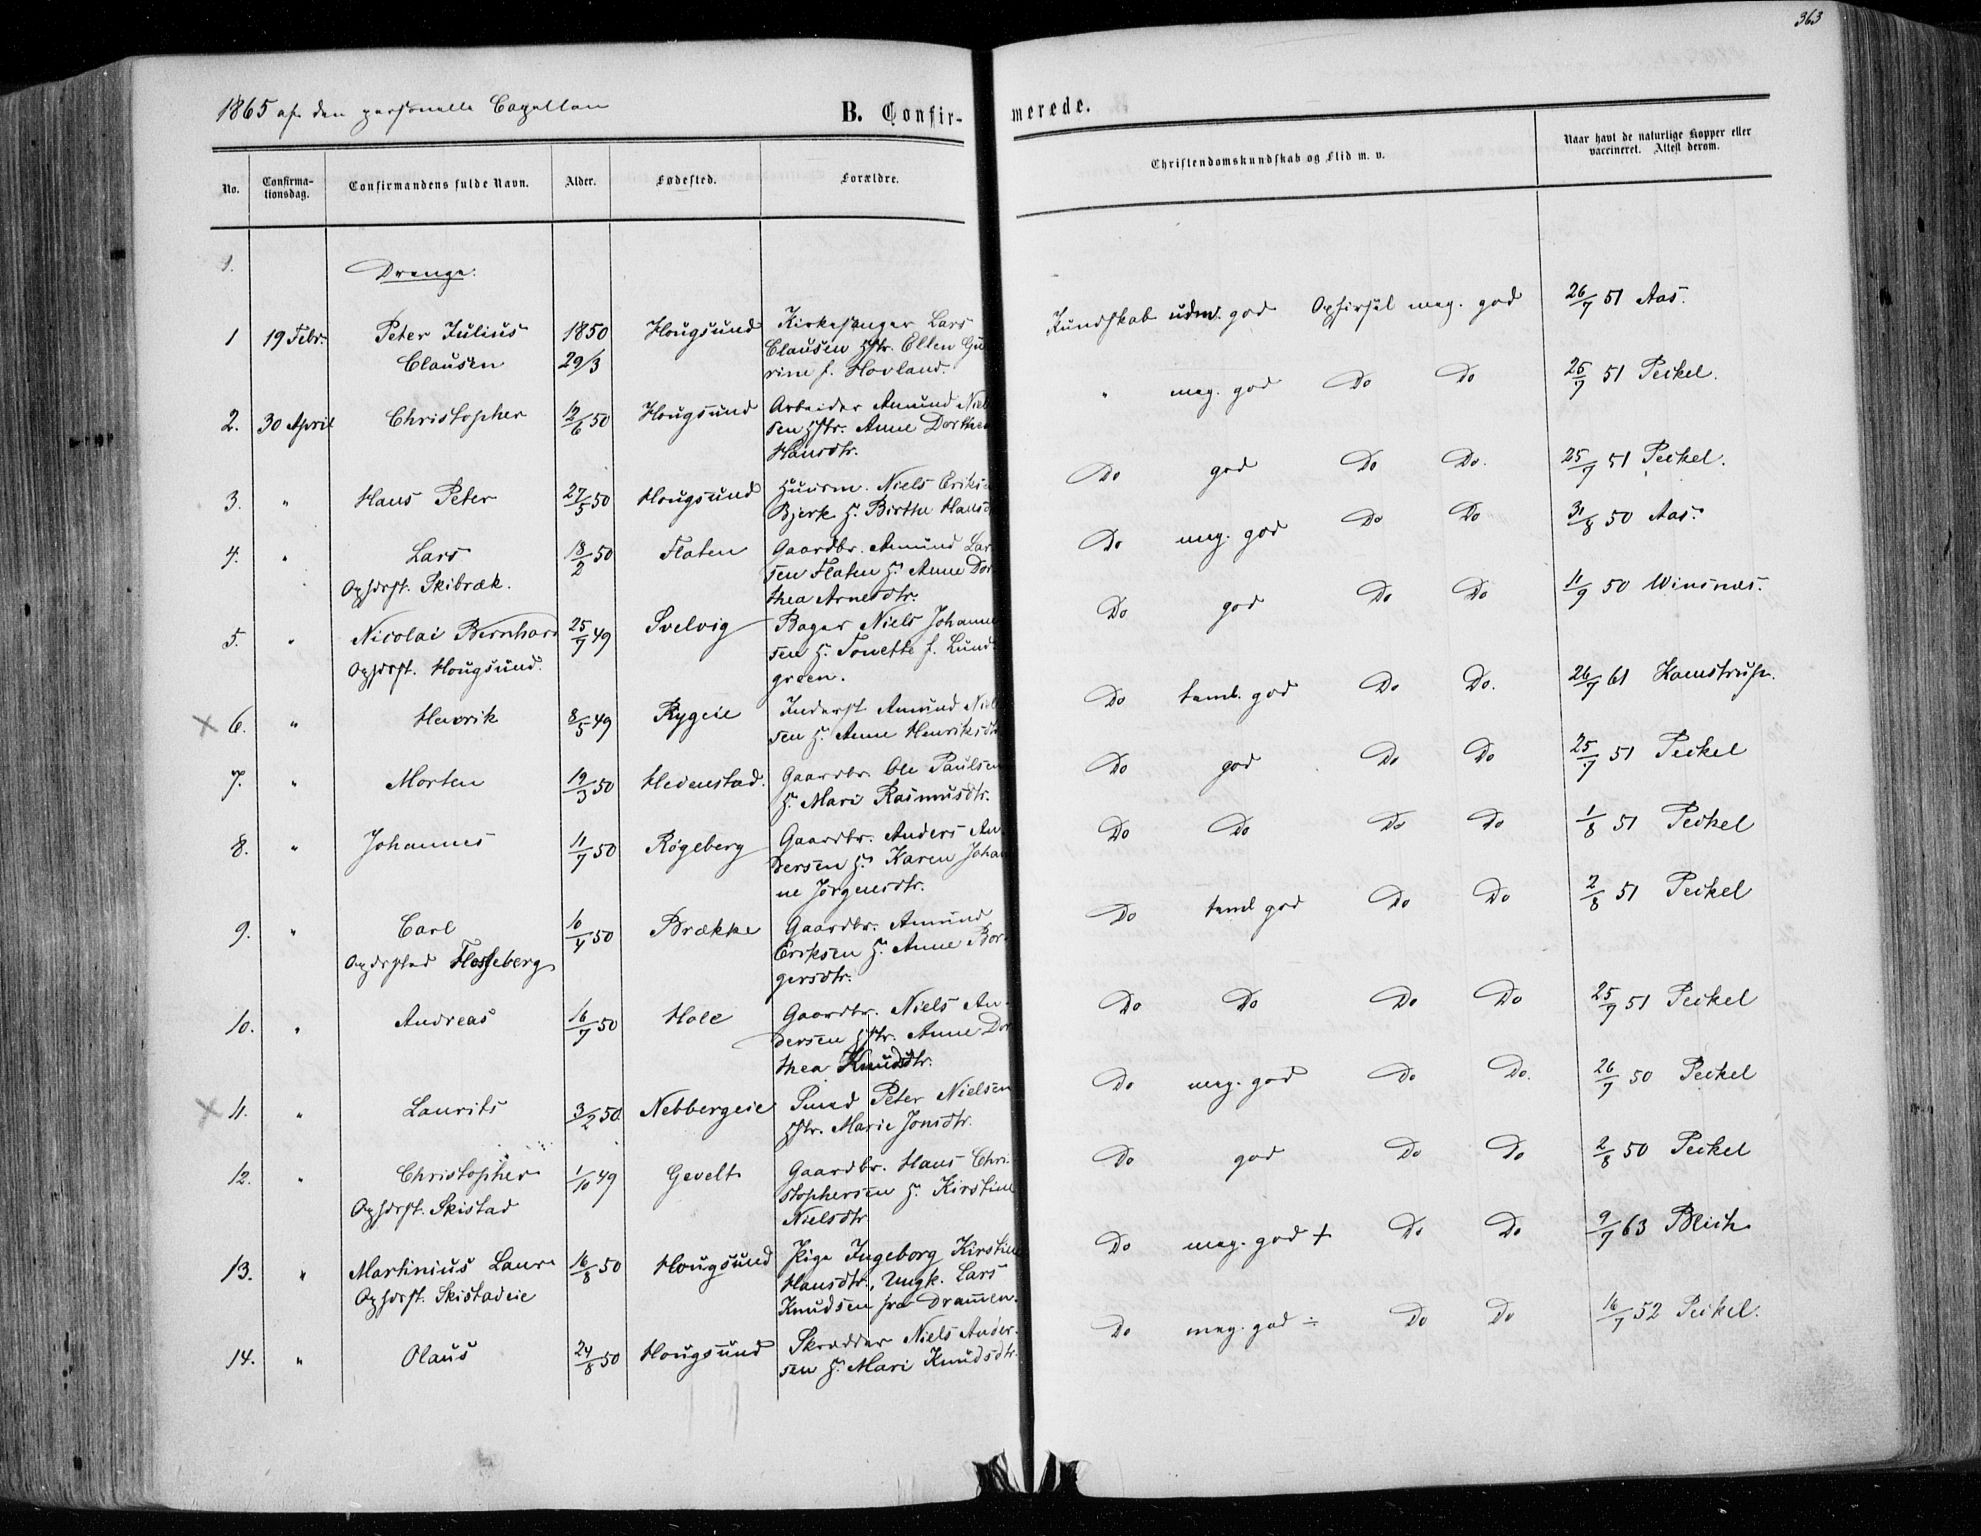 363
1865 af den personelle Capellan
B. Confirmerede.
No. Confirma-tionsdag. Confirmandens fulde Navn. Alder. Fødested. Forældre. Christendomskundskab og Flid m. v. Naar havt de naturlige Kopper eller vaccineret. Attest derom.
1.
Drenge.
1 19 Febr. Peter Julius 1850 Hougsund Kirkesanger Lars Kundskab udm. god Opførsel meg. god 26/7 51 Aas.
Clausen 29/3 Clausen Hstr. Ellen Gu
rine f. Hovland.
2. 30 April Christopher 12/6 50 Hougsund Arbeider Amund Niel " meg. god Do Do 25/7 51 Peckel.
sen Hstr. Anne Dorthea
Hansdtr.
3. " Hans Peter 27/5 50 Hougsund Huusm. Niels Eriks Do god Do Do. 25/7 51 Peckel.
Bjerk H. Birthe Hansd
4. " Lars 18/2 50 Flaten Gaardbr. Amund Lar Do meg. god Do Do 31/8 50 Aas.
Ophdrst. Skibræk. sen Flaten H. Anne Dor
thea Arnesdtr.
5. " Nicolai Bernhard 25/9 49 Svelvig Bager Niels Johanne Do god Do Do 11/9 50 Winsnæs.
Ophdrst. Hougsund. sen H. Tonette f. Lund-
green.
× 6. " Henrik 8/5 49 Rygeie Inderst Amund Niel Do teml. god Do Do. 26/7 61 Kamstrup.
sen H. Anne Henriksdt
7. " Morten 19/3 50 Hedenstad. Gaardbr. Ole Paulsen Do god Do Do 25/7 51 Peckel
H. Mari Rasmusdtr.
8. " Johannes 11/7 50 Røgeberg Gaardbr. Anders An Do Do Do Do 1/8 51 Peckel
dersen H. Karen Johan
ne Jørgensdtr.
9. " Carl 16/4 50 Brække Gaardbr. Amund Do teml god Do Do 2/8 51 Peckel
Ophdrstad Flesseberg Eriksen H. Anne Bor-
gersdtr.
10. " Andreas 16/7 50 Hole Gaardbr. Niels An- Do Do Do Do 25/7 51 Peckel
dersen Hstr. Anne Dor
thea Knudsdtr.
× 11. " Laurits 3/2 50 Nebbergeie Smed Peter Nielsen Do meg. god Do Do. 26/7 50 Peckel
Hstr. Marie Jonsdtr.
12. " Christopher 1/10 49 Gevelt Gaardbr. Hans Chri- Do god Do Do 2/8 50 Peckel
Ophdrst. Skistad stophersen H. Kirstine
Nielsdtr
13. " Martinius Laur. 16/8 50 Hougsund Pige Ingeborg Kirstine Do meg. god + Do Do 9/7 63 Blich
Ophdrst. Skistadeie Hansdtr., Ungk. Lars
Knudsen fra Drammen.
14. " Olaus 24/8 50 Hougsund Skrædder Niels Ander- Do meg. god ÷ Do Do 16/7 52 Peckel.
sen H. Mari Knudsdtr.